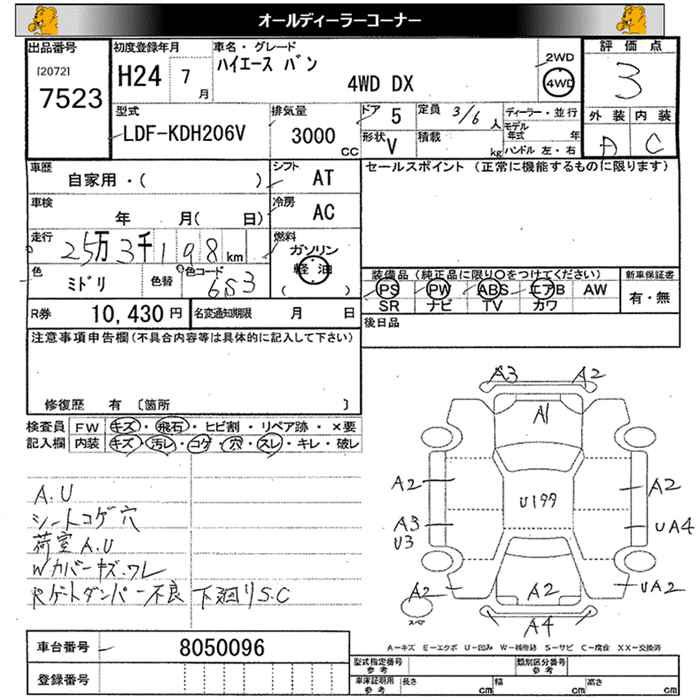 オールディーラーコーナー
出品番号
[2072]
7523
初度登録年月
H24 7月
車名・グレード
ハイエース バン
4WD DX
2WD
4WD
評価点
3
外装 内装
A C
型式
LDF-KDH206V
排気量
3000 CC
ドア 5
定員 3/6人
ディーラー・並行
形状 V
積載 kg
モデル年式 年
ハンドル 左・右
車歴
自家用・( )
シフト AT
セールスポイント(正常に機能するものに限ります)
車検
年 月( 日)
冷房 AC
走行
25万3千198km
燃料
ガソリン
軽油
( )
色
ミドリ
色替
色コード
6S3
装備品(純正品に限り○をつけてください)
新車保証書
PS PW ABS エアB AW
有・無
SR ナビ TV カワ
R券 10,430円
名変通知期限 月 日
後日品
注意事項申告欄(不具合内容等は具体的に記入して下さい)
修復歴 有 〔箇所 〕
検査員記入欄
FW キズ・飛石・ヒビ割・リペア跡・×要
内装 キズ・汚レ・コゲ・穴・スレ・キレ・破レ
A.U
シートコゲ穴
荷室A.U
Wカバーキズ.ワレ
Rゲートダンパー不良 下廻りS.C
A3 A2
A1
A2 A2
U199
A3 UA4
U3
A2 A2 UA2
A4
スペア
A-キズ E-エクボ U-凹み W-補修跡 S-サビ C-腐食 XX-交換済
車台番号 8050096
登録番号
型式指定番号 参考
類別区分番号 参考
車庫証明用 参考
長さ cm 幅 cm 高さ cm